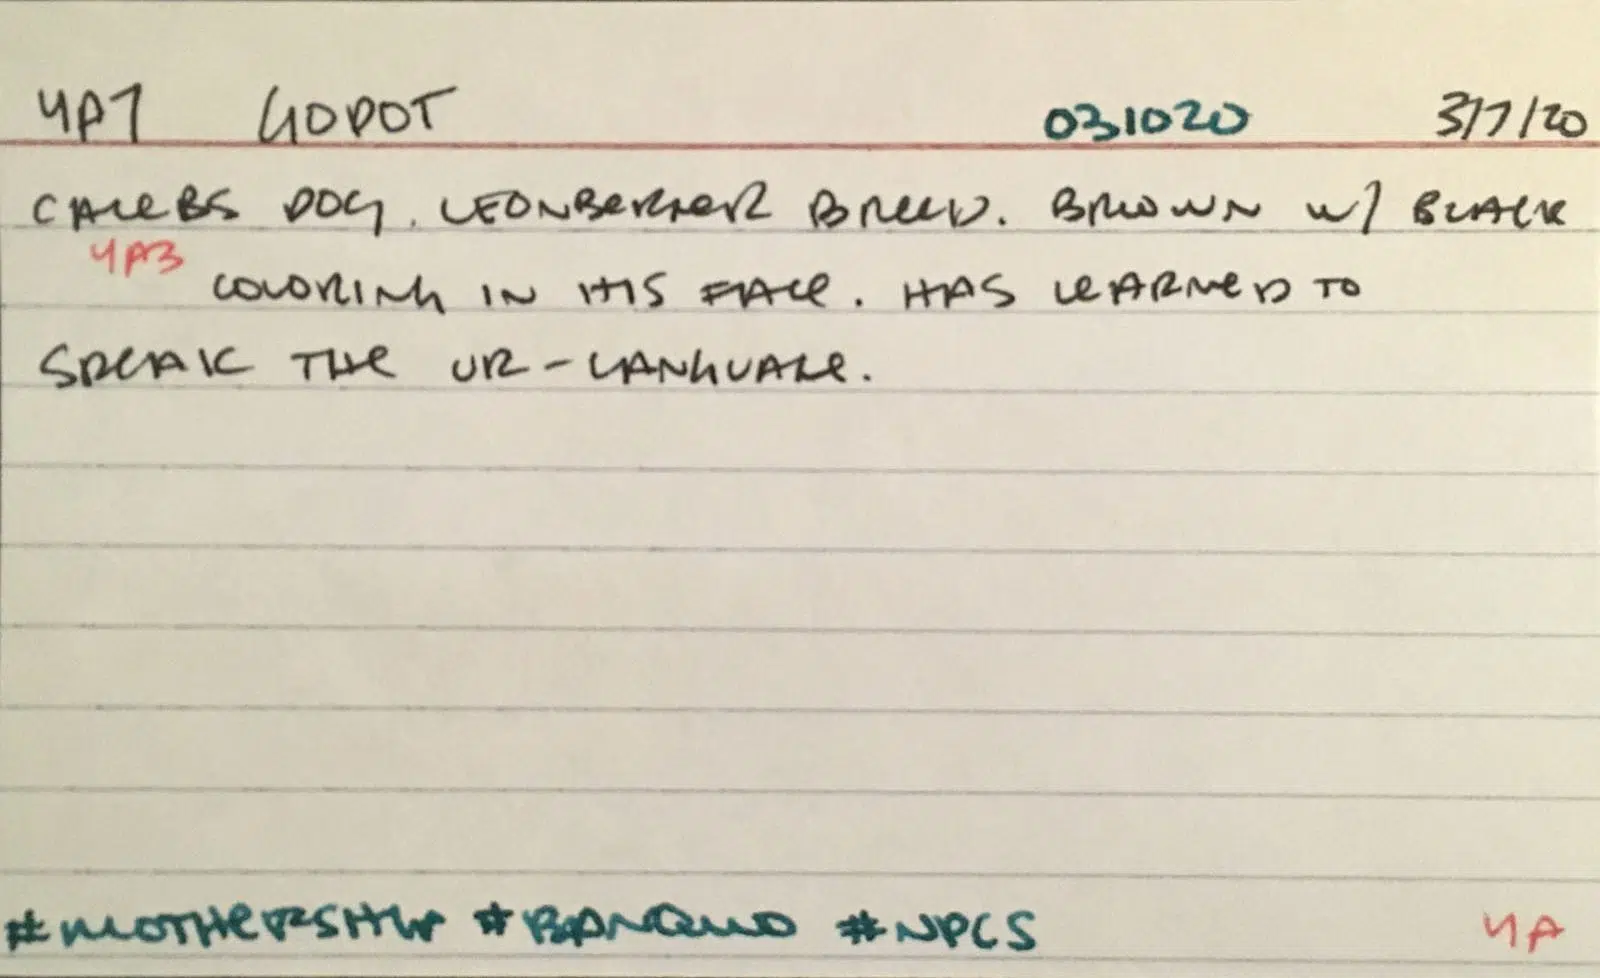 4A7 GODOT 031020 3/7/20
CALEBS DOG. LEONBERGER BREED. BROWN W/ BLACK
4A3
COLORING IN HIS FACE. HAS LEARNED TO
SPEAK THE UR-LANGUAGE.
#MOTHERSHIP #BANQUO #NPCS 4A